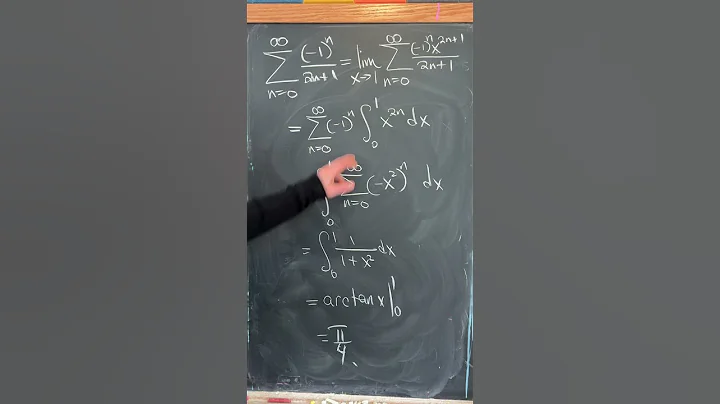 ∞ ∑ n=0 (-1)^n / 2n+1 = lim x→1 ∞ ∑ n=0 (-1)^n x^{2n+1} / 2n+1
= ∞ ∑ n=0 (-1)^n ∫_0^1 x^{2n} dx
∫_0 ∞ ∑ n=0 (-x^2)^n dx
= ∫_0^1 1 / 1+x^2 dx
= arctan x |_0^1
= π / 4.